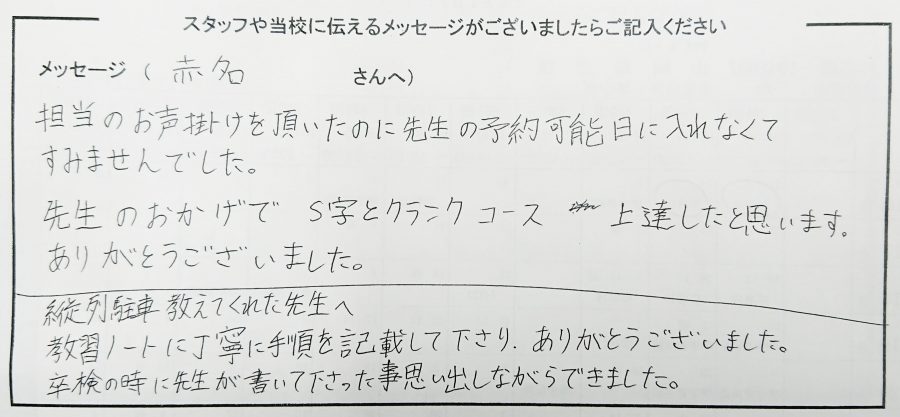 スタッフや当校に伝えるメッセージがございましたらご記入ください
メッセージ（ 赤名 さんへ）
担当のお声掛けを頂いたのに先生の予約可能日に入れなくて
すみませんでした。
先生のおかげで S字とクランクコース 上達したと思います。
ありがとうございました。
縦列駐車教えてくれた先生へ
教習ノートに丁寧に手順を記載して下さり、ありがとうございました。
卒検の時に先生が書いて下さった事思い出しながらできました。